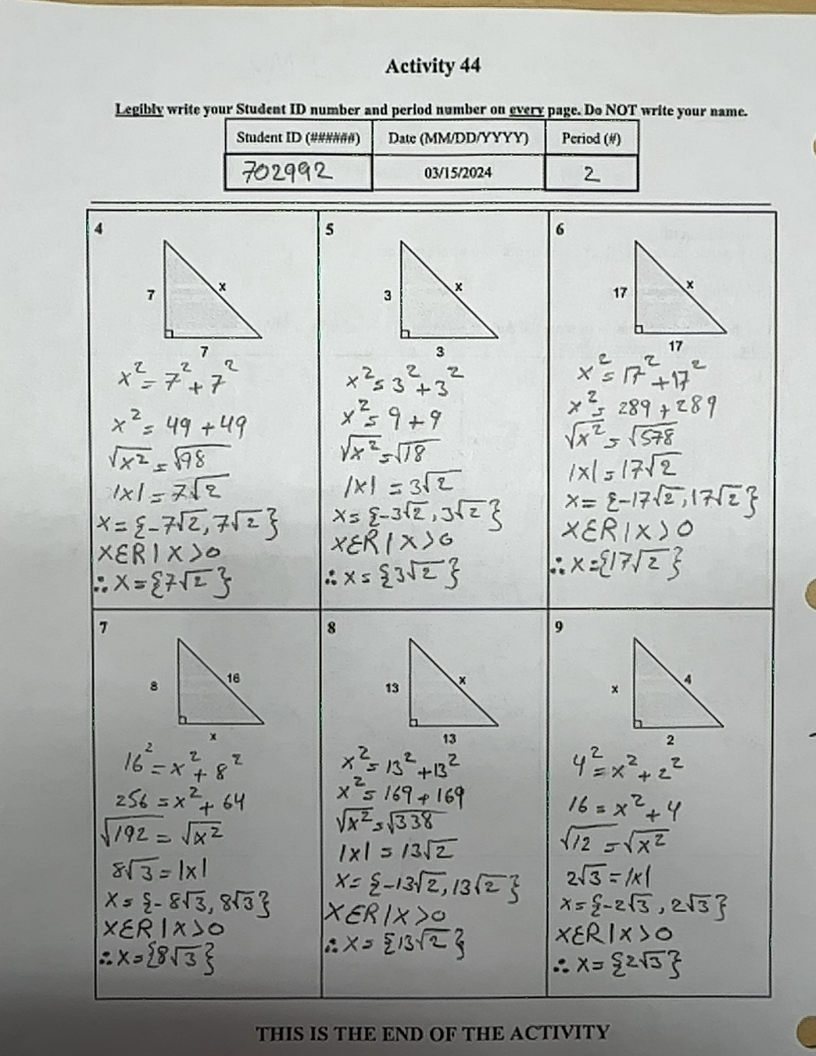 Activity 44
Legibly write your Student ID number and period number on every page. Do NOT write your name.
Student ID (######) Date (MM/DD/YYYY) Period (#)
702992 03/15/2024 2
4
7
x
7
x² = 7² + 7²
x² = 49 + 49
√x² = √98
|x| = 7√2
x = {-7√2, 7√2}
XER | X > 0
∴ X = {7√2}
5
3
x
3
x² = 3² + 3²
x² = 9 + 9
√x² = √18
|x| = 3√2
x = {-3√2, 3√2}
XER | X > 0
∴ x = {3√2}
6
17
x
17
x² = 17² + 17²
x² = 289 + 289
√x² = √578
|x| = 17√2
x = {-17√2, 17√2}
XER | X > 0
∴ X = {17√2}
7
8
16
x
16² = x² + 8²
256 = x² + 64
√192 = √x²
8√3 = |x|
x = {-8√3, 8√3}
XER | X > 0
∴ X = {8√3}
8
13
x
13
x² = 13² + 13²
x² = 169 + 169
√x² = √338
|x| = 13√2
x = {-13√2, 13√2}
XER | X > 0
∴ X = {13√2}
9
x
4
2
4² = x² + 2²
16 = x² + 4
√12 = √x²
2√3 = |x|
x = {-2√3, 2√3}
XER | X > 0
∴ X = {2√3}
THIS IS THE END OF THE ACTIVITY